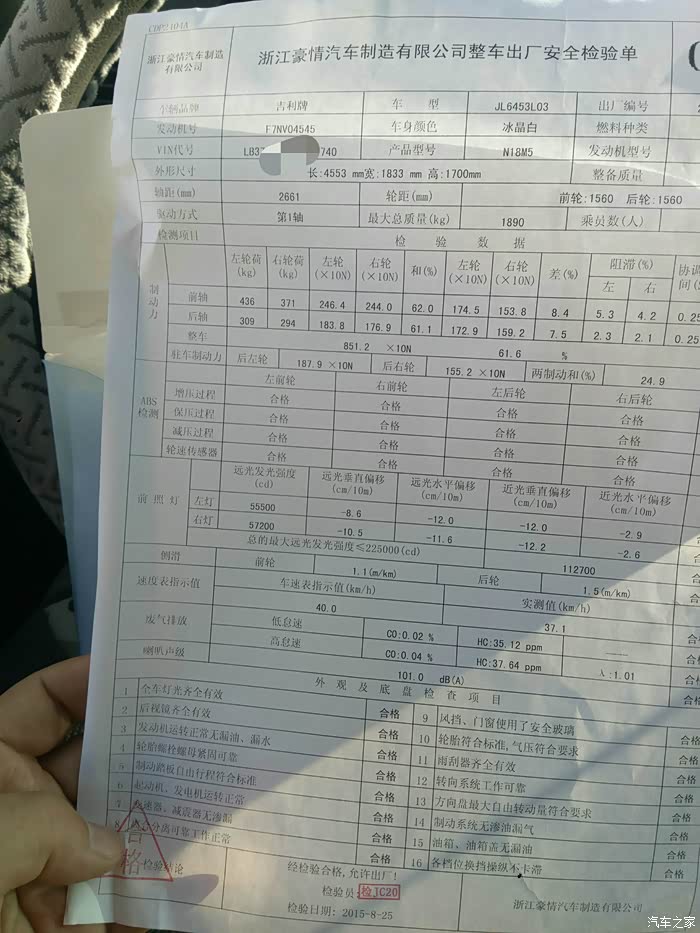 CDP2404A
浙江豪情汽车制造有限公司
浙江豪情汽车制造有限公司整车出厂安全检验单
车辆品牌 吉利牌 车 型 JL6453L03 出厂编号
发动机号 F7NV04545 车身颜色 冰晶白 燃料种类
VIN代号 LB37 740 产品型号 N18M5 发动机型号
外形尺寸 长:4553 mm宽:1833 mm 高:1700mm 整备质量
轴距(mm) 2661 轮距(mm) 前轮:1560 后轮:1560
驱动方式 第1轴 最大总质量(kg) 1890 乘员数(人)
检测项目 检 验 数 据
制动力 左轮荷(kg) 右轮荷(kg) 左轮(×10N) 右轮(×10N) 和(%) 左轮(×10N) 右轮(×10N) 差(%) 阻滞(%) 左 右 协调
前轴 436 371 246.4 244.0 62.0 174.5 153.8 8.4 5.3 4.2 0.25
后轴 309 294 183.8 176.9 61.1 172.9 159.2 7.5 2.3 2.1 0.25
整车 851.2 ×10N 61.6 %
驻车制动力 后左轮 187.9 ×10N 后右轮 155.2 ×10N 两制动和(%) 24.9
ABS检测 左前轮 右前轮 左后轮 右后轮
增压过程 合格 合格 合格 合格
保压过程 合格 合格 合格 合格
减压过程 合格 合格 合格 合格
轮速传感器 合格 合格 合格 合格
前照灯 远光发光强度(cd) 远光垂直偏移(cm/10m) 远光水平偏移(cm/10m) 近光垂直偏移(cm/10m) 近光水平偏移(cm/10m)
左灯 55500 -8.6 -12.0 -12.0 -2.9 合格
右灯 57200 -10.5 -11.6 -12.2 -2.6 合格
总的最大远光发光强度≤225000(cd) 112700 合格
侧滑 前轮 1.1(m/km) 后轮 1.5(m/km) 合格
速度表指示值 车速表指示值(km/h) 实测值(km/h)
40.0 37.1 合格
废气排放 低怠速 CO:0.02 % HC:35.12 ppm —— 合格
高怠速 CO:0.04 % HC:37.64 ppm λ:1.01 合格
喇叭声级 101.0 dB(A) 合格
外 观 及 底 盘 检 查 项 目
1 全车灯光齐全有效 合格 9 风挡、门窗使用了安全玻璃 合格
2 后视镜齐全有效 合格 10 轮胎符合标准,气压符合要求 合格
3 发动机运转正常无漏油、漏水 合格 11 雨刮器齐全有效 合格
4 轮胎螺栓螺母紧固可靠 合格 12 转向系统工作可靠 合格
5 制动踏板自由行程符合标准 合格 13 方向盘最大自由转动量符合要求 合格
6 起动机、发电机运转正常 合格 14 制动系统无渗油漏气 合格
7 速器、减震器无渗漏 合格 15 油箱、油箱盖无漏油 合格
8 分离可靠工作正常 合格 16 各档位换挡操纵不卡滞 合格
合格
检验结论 经检验合格,允许出厂!
检验员: 检JC20
检验日期: 2015-8-25
浙江豪情汽车制造有限公司
汽车之家